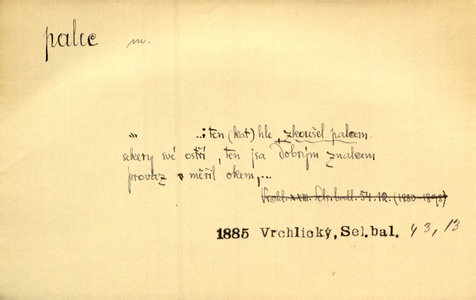 palec m.
...; ten (kat) hle, zkoušel palcem
sekery své ostří, ten jsa dobrým znalcem
provaz měřil okem,...
Vrchl. XXIII. Sel. ball. 54. 12. (1880-1893)
1885 Vrchlický, Sel. bal. 43, 13